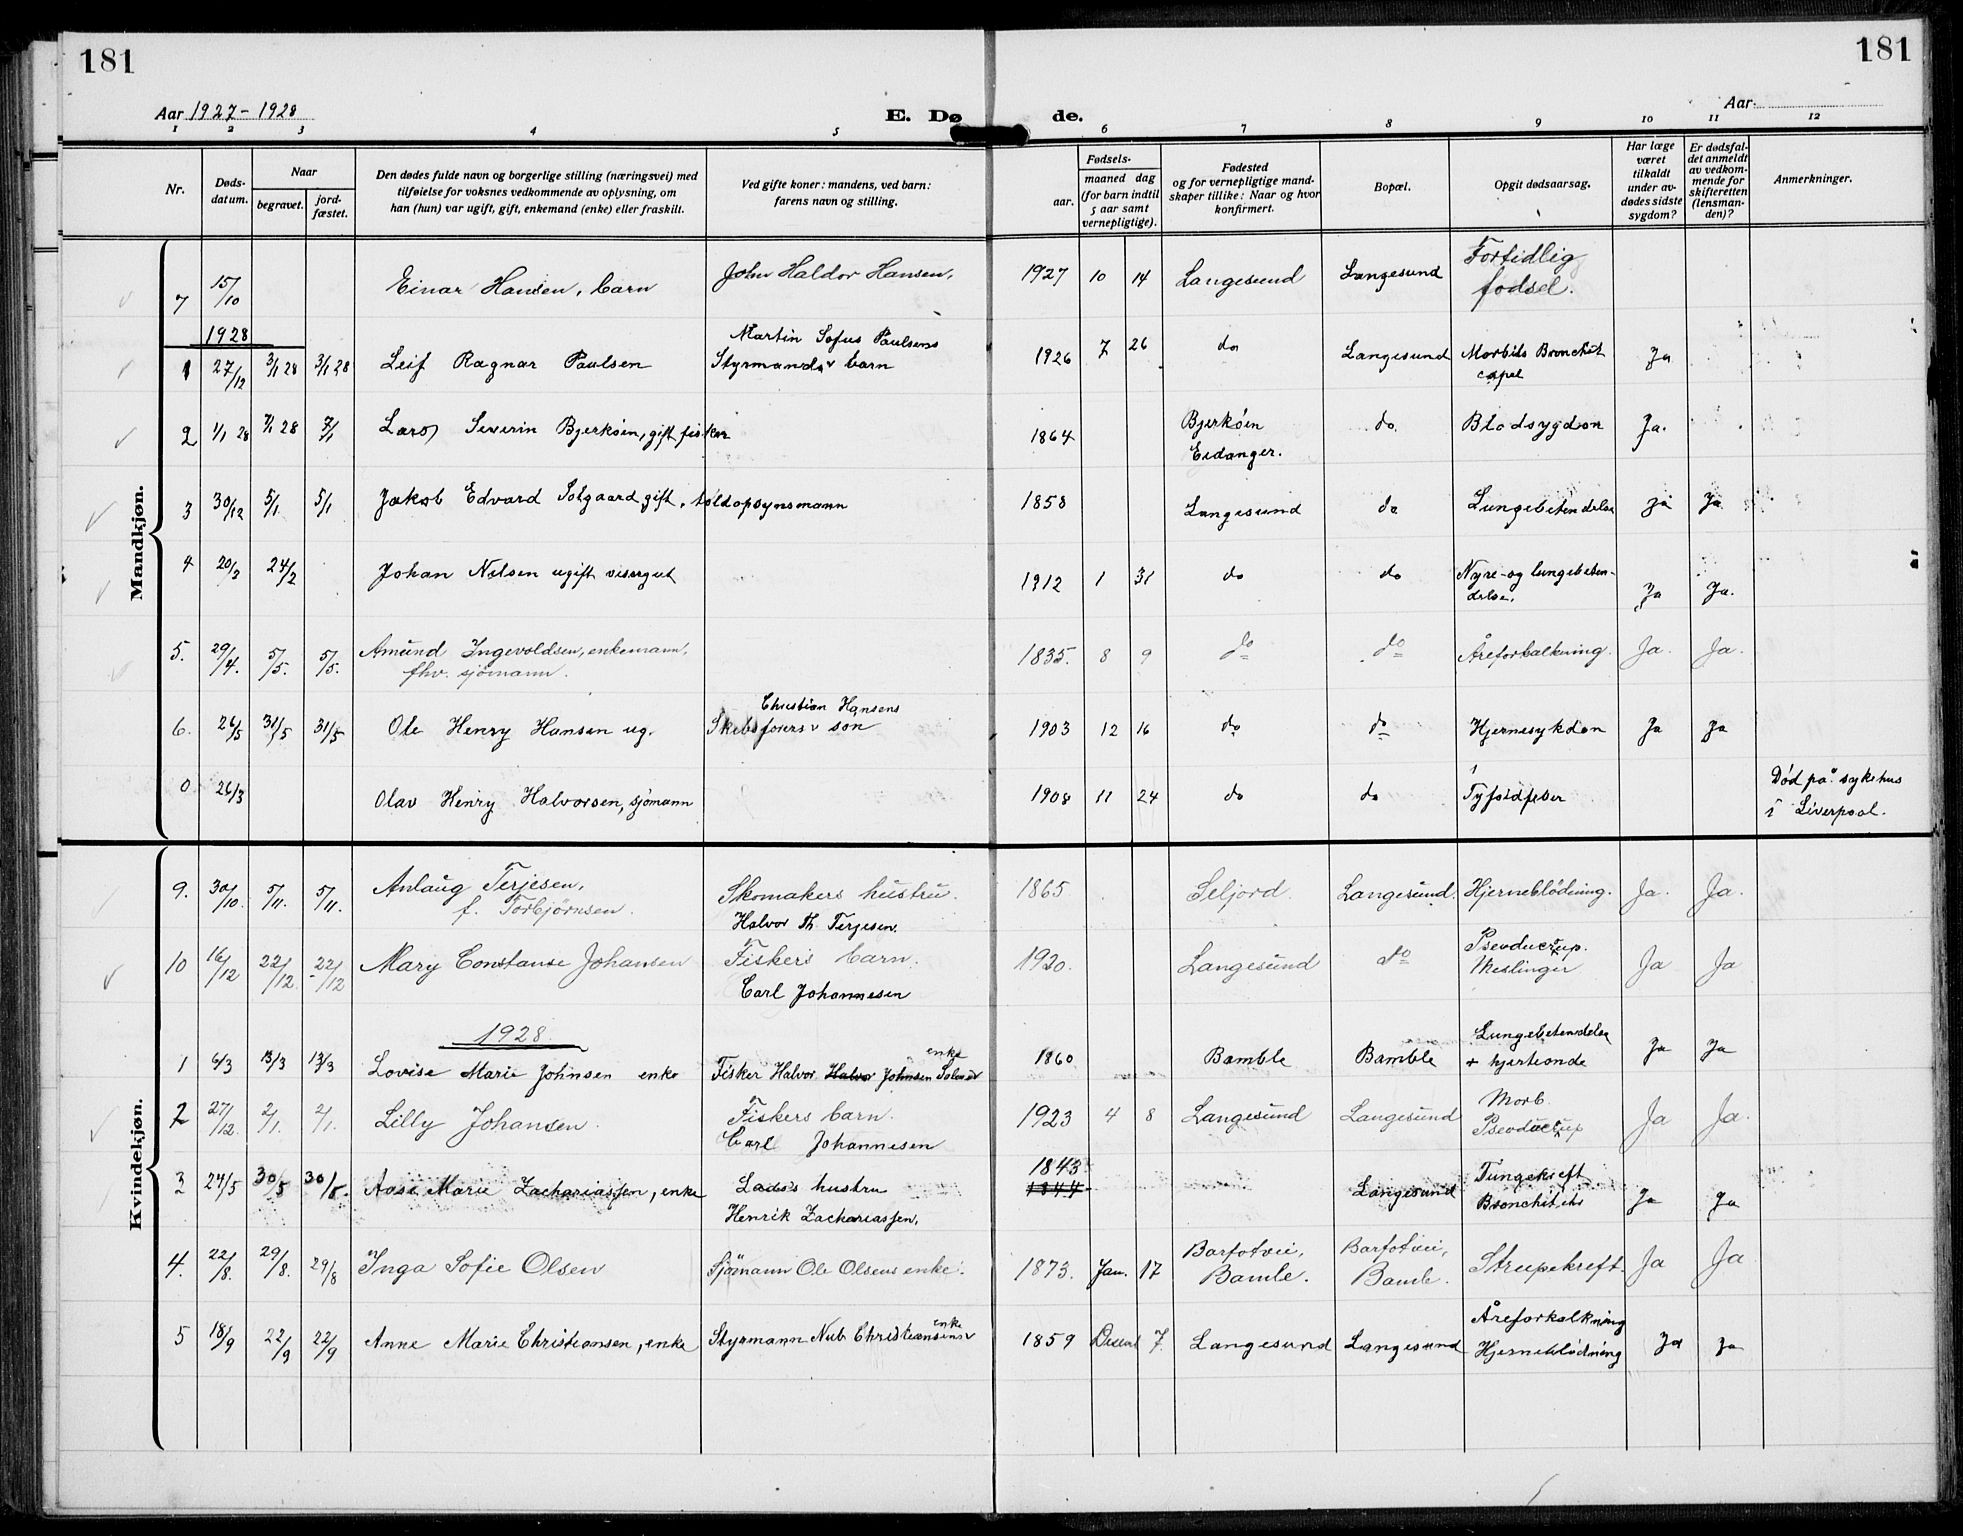 181
181
Aar 1927 – 1928
E. Dø de.
Aar
1 2 3 4 5 6 7 8 9 10 11 12
Nr.
Døds-
datum.
Naar
begravet.
jord-
fæstet.
Den dødes fulde navn og borgerlige stilling (næringsvei) med
tilføielse for voksnes vedkommende av oplysning, om
han (hun) var ugift, gift, enkemand (enke) eller fraskilt.
Ved gifte koner: mandens, ved barn:
farens navn og stilling.
Fødsels-
aar.
maaned dag
(for barn indtil
5 aar samt
vernepligtige).
Fødested
og for vernepligtige mand-
skaper tillike: Naar og hvor
konfirmert.
Bopæl.
Opgit dødsaarsag.
Har læge
været
tilkaldt
under av-
dødes sidste
sygdom?
Er dødsfal-
det anmeldt
av vedkom-
mende for
skifteretten
(lensman-
den)?
Anmerkninger.
Mandkjøn.
7 15/10 Einar Hansen, barn John Haldor Hansen, 1927 10 14 Langesund Langesund Fortidlig
fødsel.
1928
Martin Sofus Paulsens
1 27/12 3/1 28 3/1 28 Leif Ragnar Paulsen Styrmands v barn 1926 7 26 do Langesund Morbits Bronchit
capel Ja
2 1/1 28 7/1 28 7/1 Lars Severin Bjerkøen, gift fisker 1864 Bjerkøen
Eidanger. do. Blodsygdon Ja.
3 30/12 5/1 5/1 Jakob Edvard Solgaard, gift, toldopsynsmann 1858 Langesund do Lungebetendelse Ja Ja
4 20/2 24/2 Johan Nilsen ugift visergut 1912 1 31 do do Nyre- og lungebeten-
delse. Ja Ja.
5. 29/4. 5/5. 5/5. Amund Ingevoldsen, enkemann,
fhv. sjømann. 1835. 8 9 do do Åreforkalkning. Ja. Ja.
Christian Hansens
6. 26/5 31/5 31/5 Ole Henry Hansen ug. Skibsførers v søn 1903 12 16 do do Hjernesykdon Ja Ja
0 26/3 Olav Henry Halvorsen, sjømann 1908 11 24 do do Tyfoidfeber Død på sykehus
i Liverpool.
Kvindekjøn.
9. 30/10. 5/11. 5/11. Anlaug Terjesen,
f. Torbjørnsen. Skomakers hustru.
Halvor Th. Terjesen. 1865 Seljord. Langesund. Hjerneblødning. Ja. Ja.
10 16/12 22/12. 22/12 Mary Constanse Johansen Fiskers barn.
Carl Johannesen 1920. Langesund do Psevducrup.
Meslinger Ja Ja
1928
1 6/3 13/3 13/3 Lovise Marie Johnsen enke Fisker Halvor Halvor Johnsen enke 1860 Bamble Bamble Lungebetendelse
+ hjerteonde Ja Ja
2 27/12. 2/1. 2/1. Lilly Johansen. Fiskers barn.
Carl Johannesen 1923 4 8 Langesund Langesund Morb.
Psevducrup Ja Ja.
3 24/5 30/5 30/5. Aase Marie Zachariassen, enke Lods's hustru
Henrik Zachariassen, 1843
1844 Langesund Tungekreft
Bronchitiks Ja Ja
4. 22/8. 29/8. 29/8 Inga Sofie Olsen Sjømann Ole Olsens enke. 1873. Jan. 17 Barfotvei,
Bamle. Barfotvei,
Bamb. Strupekreft. Ja Ja
5 18/9 22/9 22/9 Anne Marie Christiansen, enke Styrmann Nub Christiansens v enke 1859 Desem 7. Langesund Langesund Åreforkalkning
Hjerneblødning Ja Ja